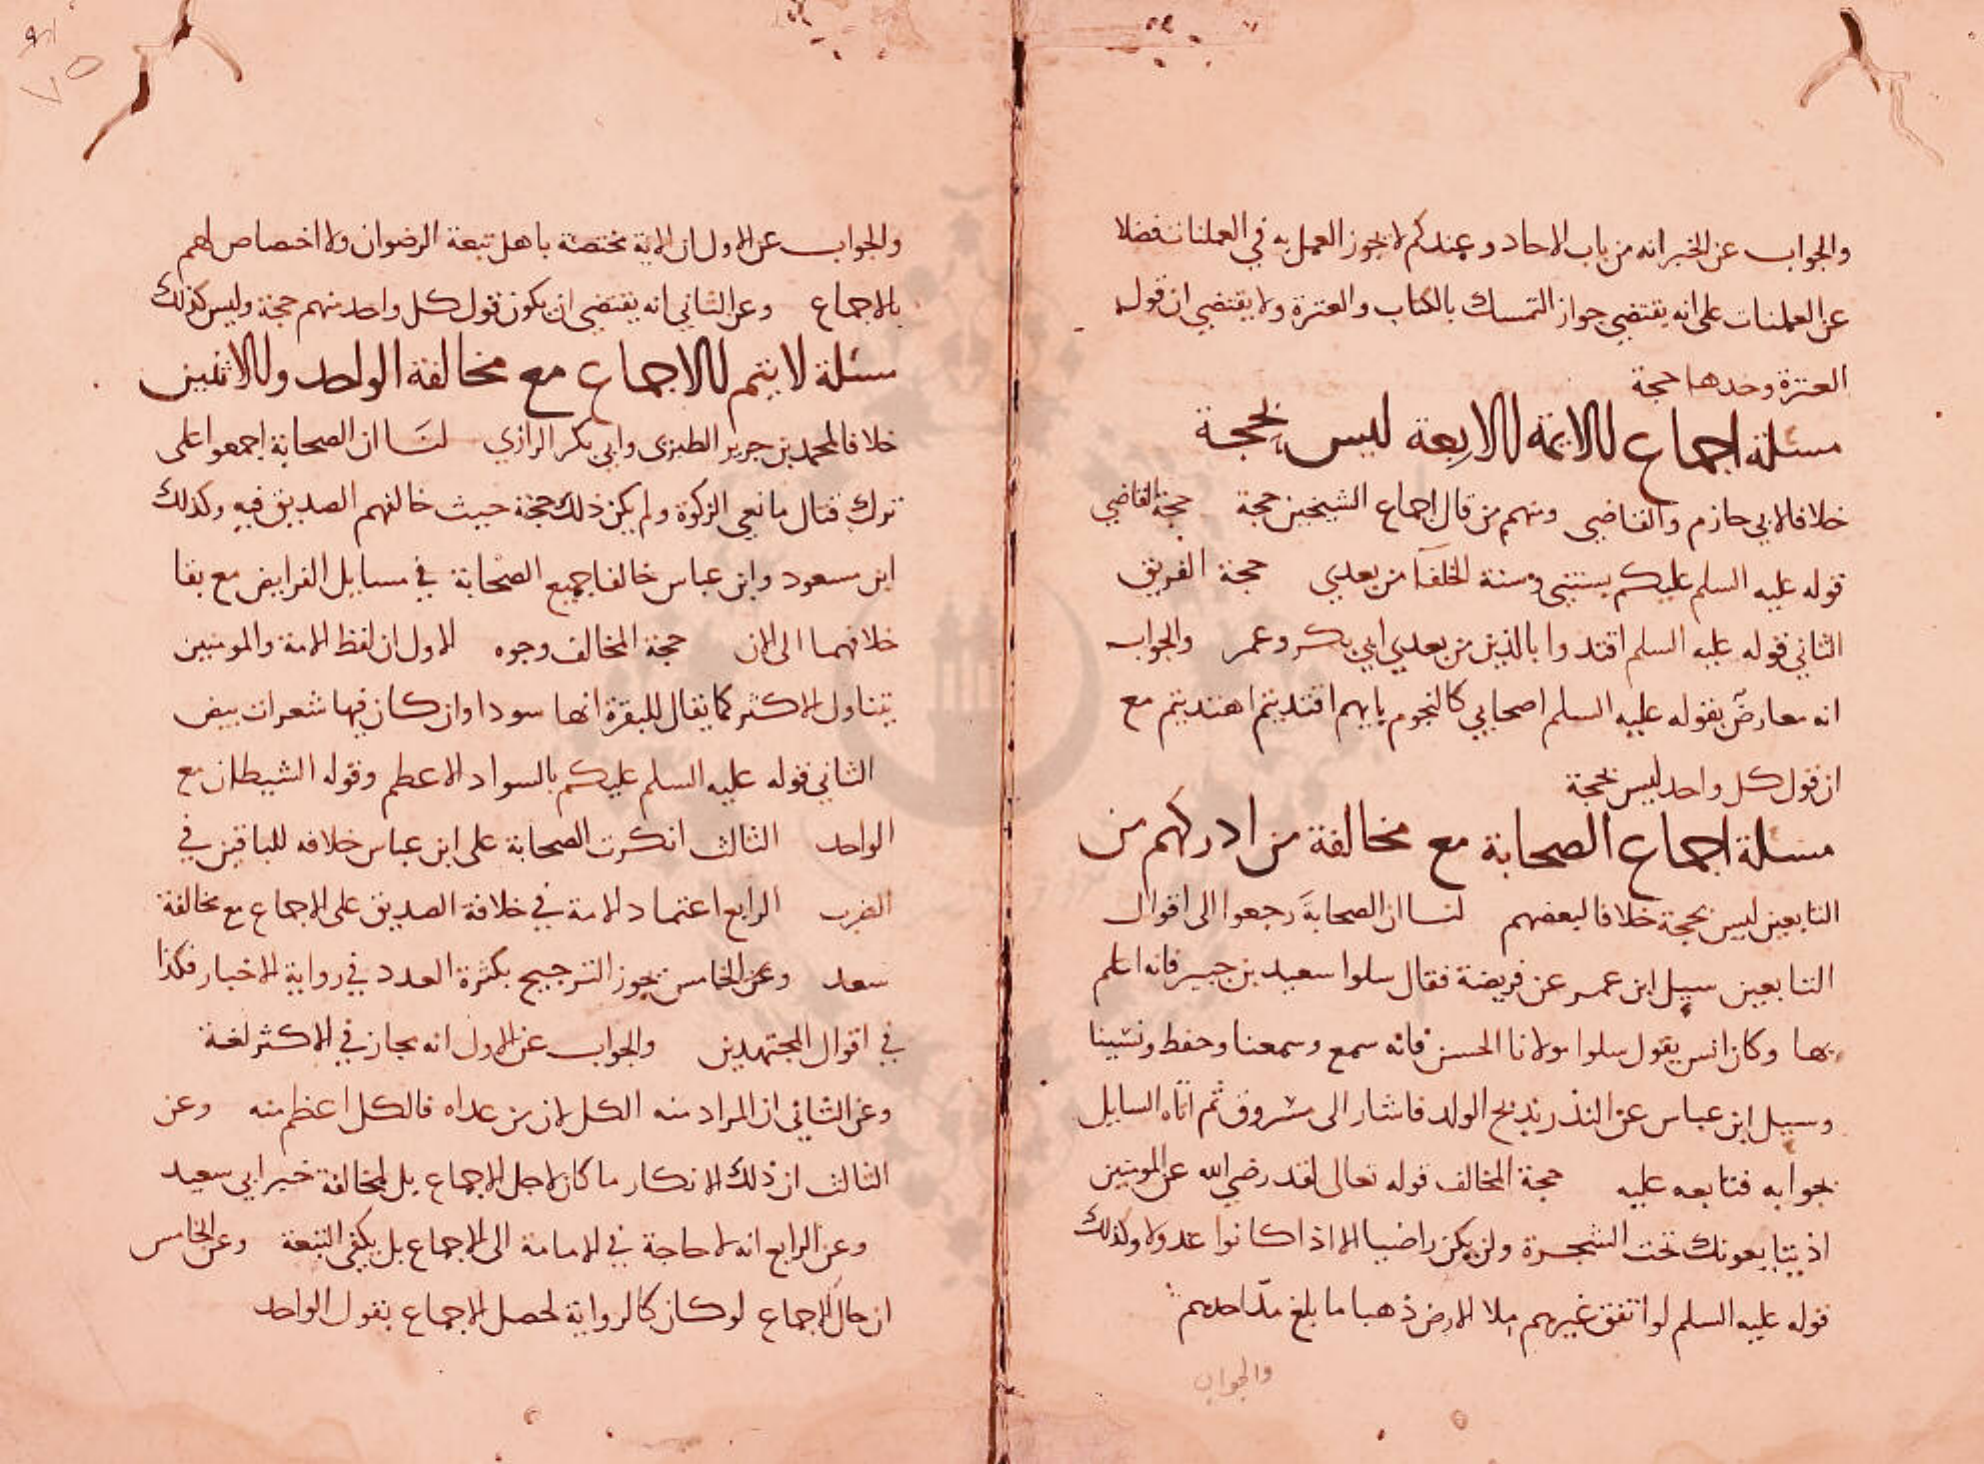 والجواب عن الخبر انه من باب الاحاد وعندكم لا يجوز العمل به في العمليات فضلا
عن العلميات على انه يقتضي جواز التمسك بالكتاب والعترة ولا يقتضي ان قول
العترة وحدها حجة
مسئلة اجماع الائمة الاربعة ليس بحجة
خلافا لابي حازم والقاضي ومنهم من قال اجماع الشيخين حجة حجة القاضي
قوله عليه السلم عليكم بسنتي وسنة الخلفآ من بعدي حجة الفريق
الثاني قوله عليه السلم اقتدوا بالذين من بعدي ابي بكر وعمر والجواب
انه معارض بقوله عليه السلم اصحابي كالنجوم بايهم اقتديتم اهتديتم مع
ان قول كل واحد ليس بحجة
مسئلة اجماع الصحابة مع مخالفة من ادركهم من
التابعين ليس بحجة خلافا لبعضهم لنا ان الصحابة رجعوا الى اقوال
التابعين سيل ابن عمر عن فريضة فقال سلوا سعيد بن جبير فانه اعلم
بها وكان انس يقول سلوا مولانا الحسن فانه سمع وسمعنا وحفظ ونسينا
وسيل ابن عباس عن النذر بذبح الولد فاشار الى مسروق ثم اتاه السايل
بجوابه فتابعه عليه حجة المخالف قوله تعالى لقد رضي الله عن المومنين
اذ يبايعونك تحت الشجرة ولن يكن راضيا الا اذا كانوا عدولا وكذلك
قوله عليه السلم لو انفق غيرهم ملا الارض ذهبا ما بلغ مد احدهم
والجواب
والجواب عن الاول ان الاية مختصة باهل بيعة الرضوان ولا اختصاص لهم
بالاجماع وعن الثاني انه يقتضي ان يكون قول كل واحد منهم حجة وليس كذلك
مسئلة لا يتم الاجماع مع مخالفة الواحد والاثنين
خلافا لمحمد بن جرير الطبري وابي بكر الرازي لنا ان الصحابة اجمعوا على
ترك قتال مانعي الزكوة ولم يكن ذلك حجة حيث خالفهم الصديق فيه وكذلك
ابن مسعود وابن عباس خالفا جميع الصحابة في مسايل الفرايض مع بقا
خلافهما الى الان حجة المخالف وجوه الاول ان لفظ الامة والمومنين
يتناول الاكثر كما يقال للبقرة انها سودا وان كان فيها شعرات بيض
الثاني قوله عليه السلم عليكم بالسواد الاعظم وقوله الشيطان مع
الواحد الثالث انكرت الصحابة على ابن عباس خلافه للباقين في
الصرف الرابع اعتماد الامة في خلافة الصديق على الاجماع مع مخالفة
سعد وعن الخامس يجوز الترجيح بكثرة العدد في رواية الاخبار فكذا
في اقوال المجتهدين والجواب عن الاول انه مجاز في الاكثر لغة
وعن الثاني ان المراد منه الكل لان من عداه فالكل اعظم منه وعن
الثالث ان ذلك الانكار ما كان لاجل الاجماع بل لمخالفة خبر ابي سعيد
وعن الرابع انه لا حاجة في الامامة الى الاجماع بل يكفي البيعة وعن الخامس
ان حال الاجماع لو كان كالرواية لحصل الاجماع بقول الواحد